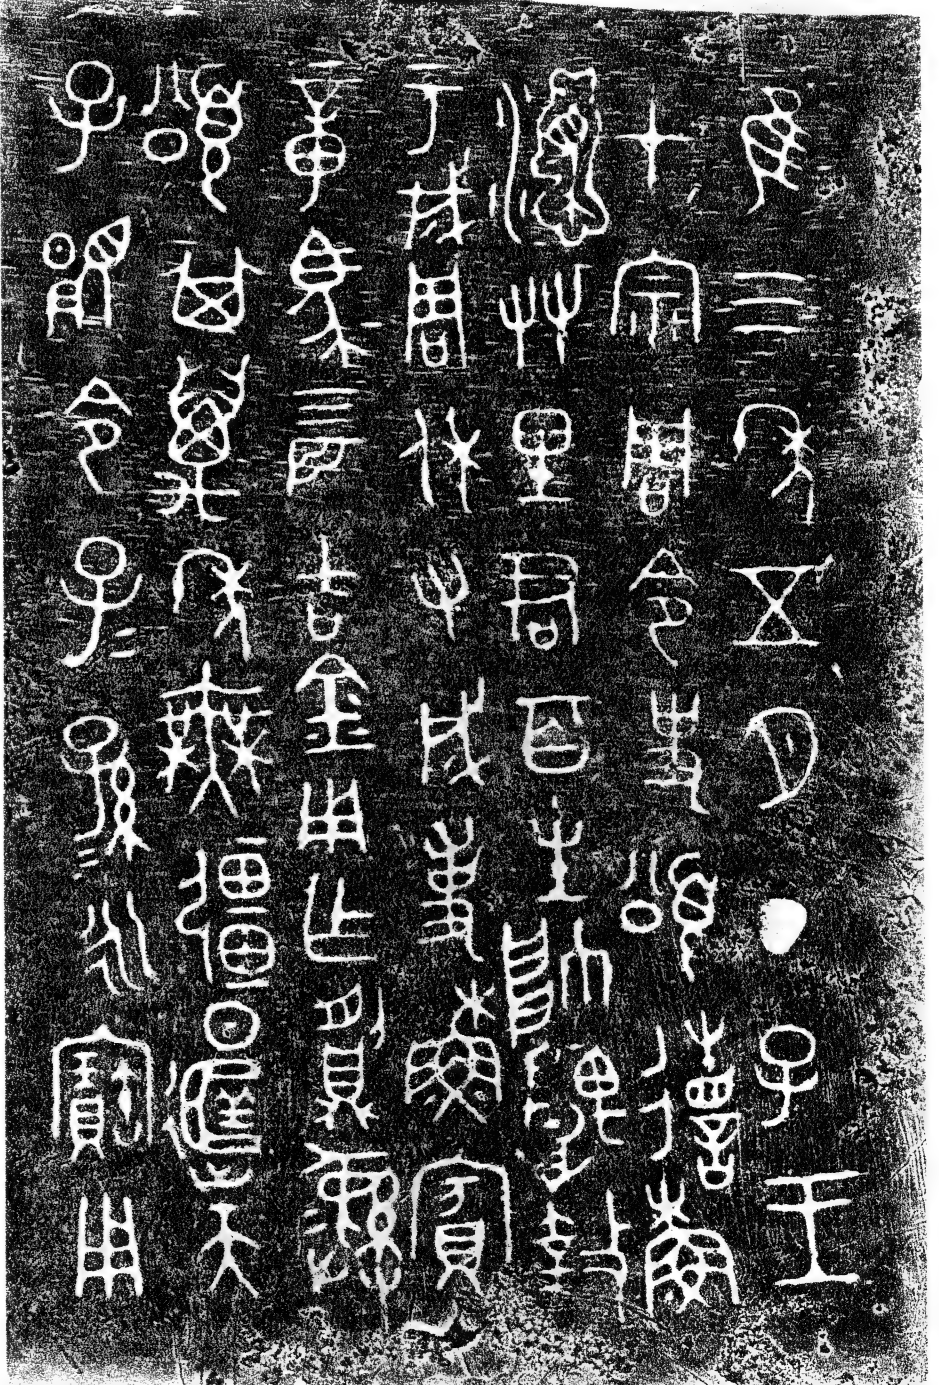 隹三年五月丁子王
才宗周令史頌省穌
友里君百生帥堣盩
于成周休又成事穌賓
章馬四匹吉金用乍䵼彝
頌其萬年無疆日遟天
子顯令子=孫=永寶用